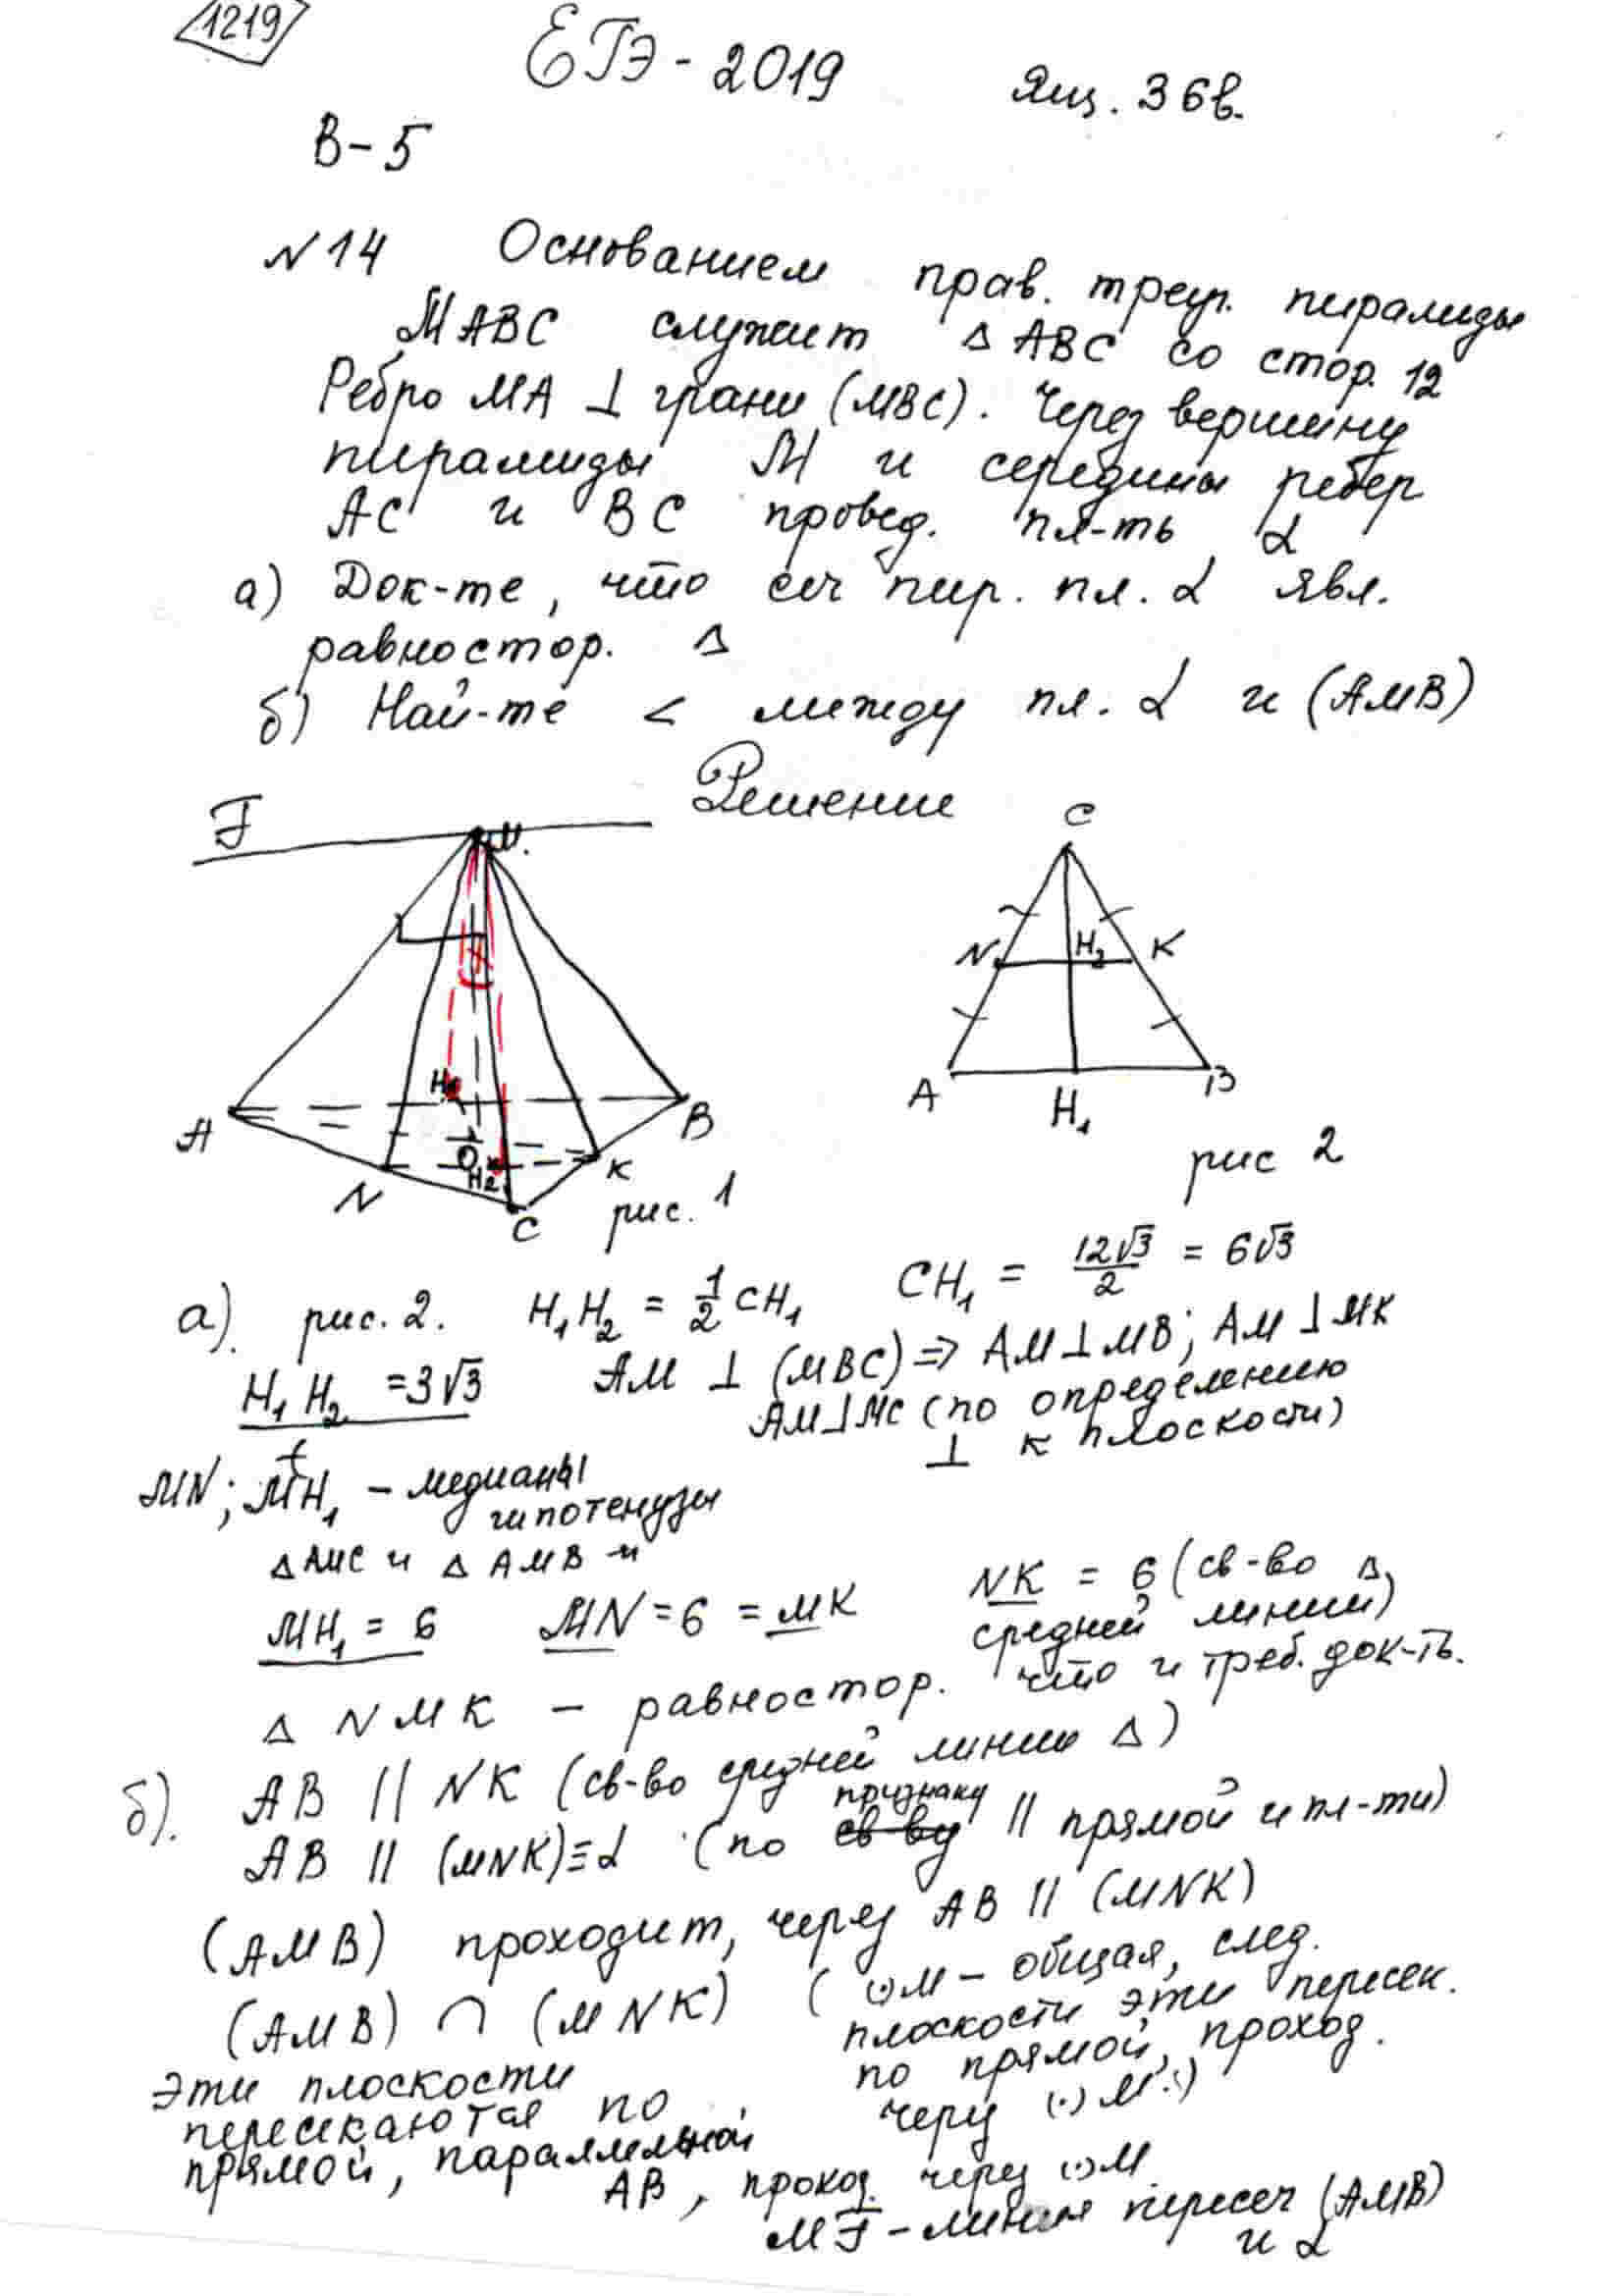 1219
ЕГЭ - 2019 Ящ. 36в.
В-5
№14 Основанием прав. треуг. пирамиды
МАВС служит Δ АВС со стор. 12
Ребро МА ⊥ грани (МВС). Через вершину
пирамиды М и середины ребер
АС и ВС провед. пл-ть α
а) Док-те, что сеч пир. пл. α явл.
равностор. Δ
б) Най-те < между пл. α и (АМВ)
Решение
F
М.
H₁
А
В
O
H₂
К
N
С
рис. 1
С
N
H₂
К
А
H₁
В
рис 2
а). рис. 2. H₁H₂ = 1/2 CH₁ CH₁ = 12√3/2 = 6√3
H₁H₂ = 3√3 АМ ⊥ (МВС) ⇒ АМ⊥МВ; АМ⊥МК
АМ⊥МС (по определению
⊥ к плоскости)
MN; MH₁ - медианы
гипотенузы
Δ АМС и Δ АМВ
MH₁ = 6 MN = 6 = MK NK = 6 (св-во
средней линии Δ)
Δ NMK - равностор. что и треб. док-ть.
б). АВ || NK (св-во средней линии Δ)
АВ || (MNK)≡α (по признаку || прямой и пл-ти)
(АМВ) проходит, через АВ || (MNK)
(АМВ) ∩ (MNK) ( (·)М - общая, след.
плоскости эти пересек.
по прямой, проход.
через (·) М.)
Эти плоскости
пересекаются по
прямой, параллельной
АВ, проход. через (·)М
MF - линия пересеч (АМВ)
и α